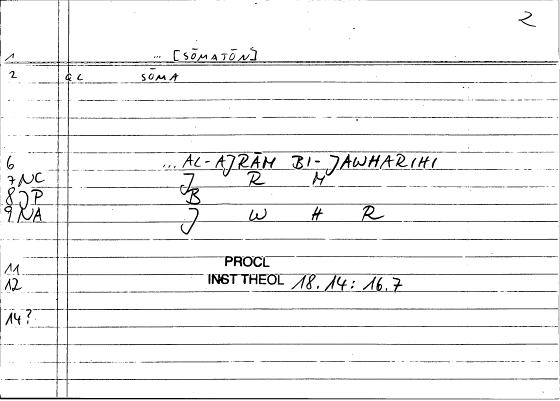 2
1 ... [SŌMATŌN]
2 GL SŌMA
6 ... AL-AJRĀM BI-JAWHARIHI
7 NC J R M
8 JP B
9 NA J W H R
PROCL
11
12 INST THEOL 18.14: 16.7
14?